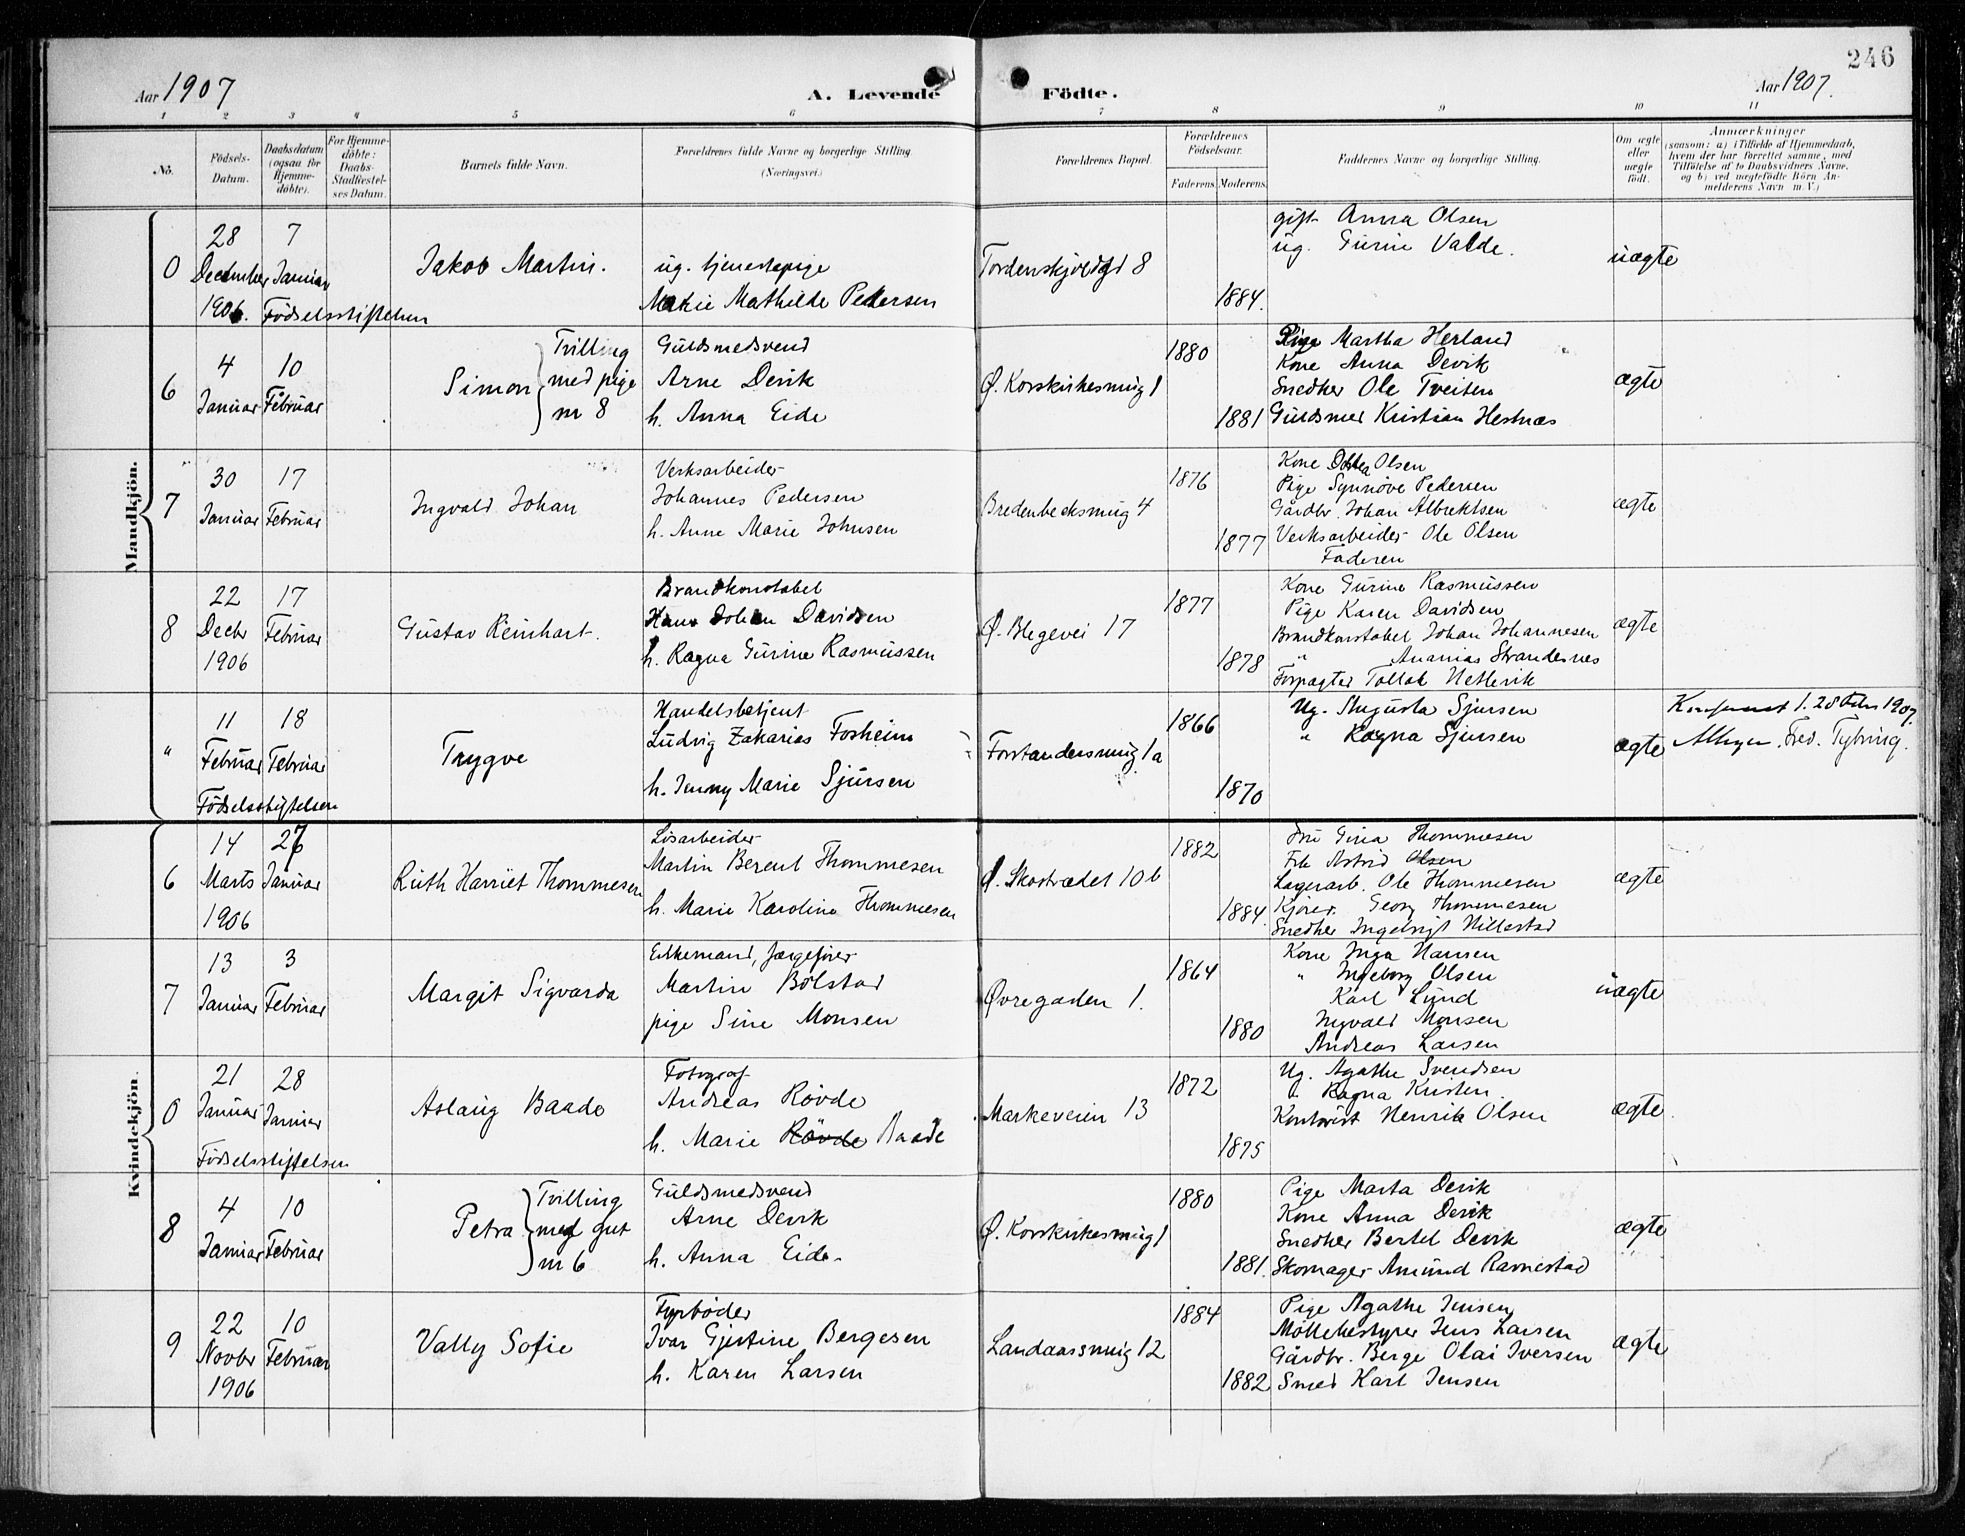 246
Aar 1907
A. Levende Födte.
Aar 1907.
1 2 3 4 5 6 7 8 9 10 11
No.
Födsels-Datum.
Daabsdatum (ogsaa för Hjemme-döbte).
For Hjemme-döbte: Daabs-Stadfæstel-ses Datum.
Barnets fulde Navn.
Forældrenes fulde Navne og borgerlige Stilling.
(Næringsvei.)
Forældrenes Bopæl.
Forældrenes Födselsaar.
Faderens. Moderens.
Faddernes Navne og borgerlige Stilling.
Om ægte eller uægte födt.
Anmærkninger
(saasom: a) i Tilfælde af Hjemmedaab,
hvem der har forrettet samme, med
Tilföielse af to Daabsvidners Navne,
og b) ved uægtefödte Börn An-
melderens Navn m. V.)
Mandkjön.
0
28 December 1906.
7 Januar
Födselsstiftelsen
Jakob Martin.
ug. tjenestepige
Marie Mathilde Pedersen
Tordenskjoldsgd 8
1884.
gift Anna Olsen
ug. Gurine Valde.
uægte
6
4 Januar
10 Februar
Simon
Tvilling
med pige
n 8
Guldsmedsvend
Arne Devik
h. Anna Eide
Ø. Korskirkesmug 1
1880
1881
Pige Martha Herland
Kone Anna Devik
Snedker Ole Tveiten
Guldsmed Kristian Hestnæs
ægte
7
30 Januar
17 Februar
Ingvald Johan
Verksarbeider
Johannes Pedersen
h. Anne Marie Johnsen
Bredenbecksmug 4
1876
1877
Kone Dorthea Olsen
Pige Synnøve Pedersen
Gårdbr. Johan Albrektsen
Verksarbeider Ole Olsen
Faderen
ægte
8
22 Decbr 1906
17 Februar
Gustav Reinhart.
Brandkonstabel
Hans Johan Davidsen
h. Ragna Gurine Rasmussen
Ø. Blegevei 17
1877
1878
Kone Gurine Rasmussen
Pige Karen Davidsen
Brandkonstabel Johan Johannesen
" Ananias Strandesnes
Forpagter Tollak Netlevik
ægte
"
11 Februar
18 Februar
Födselsstiftelsen
Trygve
Handelsbetjent
Ludvig Zakarias Fosheim
h. Jenny Marie Sjursen
Forstandersmug 1a
1866
1870
Ug. Augusta Sjursen
" Ragna Sjursen
ægte
1907.
Fred. Tybring.
Kvindekjön.
6
14 Marts 1906
27 Januar
Ruth Harriet Thommesen
Lösarbeider
Martin Berent Thommesen
h. Marie Karoline Thommesen
Ø. Skostrædet 10 b
1882
1884.
Fru Gina Thommesen
Frk Astrid Olsen
Lagerarb. Ole Thommesen
Kjörer. Georg Thommesen
Snedker Ingebrigt Hillestad
ægte
7
13 Januar
3 Februar
Margit Sigvarda
Enkemand, færgefører
Martin Bolstad
pige Sine Monsen
Øvregaden 1.
1864
1880
Kone Inga Hansen
" Ingeborg Olsen
Karl Lund
Ingvald Monsen
Andreas Larsen
uægte
0
21 Januar
28 Januar
Födselsstiftelsen
Aslaug Baade
Fotograf
Andreas Rövde
h. Marie Rövde Baade
Markeveien 13
1872
1875
Ug. Agathe Svendsen
" Ragna Kristen.
Kontorist Henrik Olsen
ægte.
8
4 Januar
10 Februar
Petra
Tvilling
med gut
n 6
Guldsmedsvend
Arne Devik
h. Anna Eide.
Ø. Korskirkesmug 1
1880
1881.
Pige Marta Devik
Kone Anna Devik
Snedker Bertel Devik
Skomager Amund Ravnestad
ægte
9
22 Novbr 1906
10 Februar
Vally Sofie
Fyrböder
Ivar Gjertine Bergesen
h. Karen Larsen
Landaassmug 12
1884
1882
Pige Agathe Jensen
Möllebestyrer Jens Larsen
Gårdbr. Berge Olai Iversen
Smed Karl Jensen
ægte